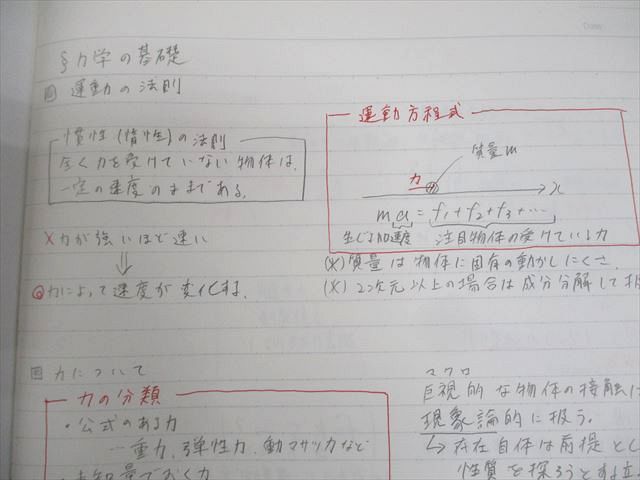 §力学の基礎
運動の法則
慣性(惰性)の法則
全く力を受けていない物体は、
一定の速度のままである。
×力が強いほど速い
⇓
◎力によって速度が変化する。
運動方程式
質量m
力
x
ma = f₁+f₂+f₃+…
生じる加速度 注目物体の受けている力
(※)質量は物体に固有の動かしにくさ
(※)2次元以上の場合は成分分解して
力について
力の分類
・公式のある力
―重力、弾性力、動マサツ力など
・未知量でおく力
マクロ
巨視的な物体の接触
現象論的に扱う。
↳存在自体は前提とし
性質を探ろうとする立